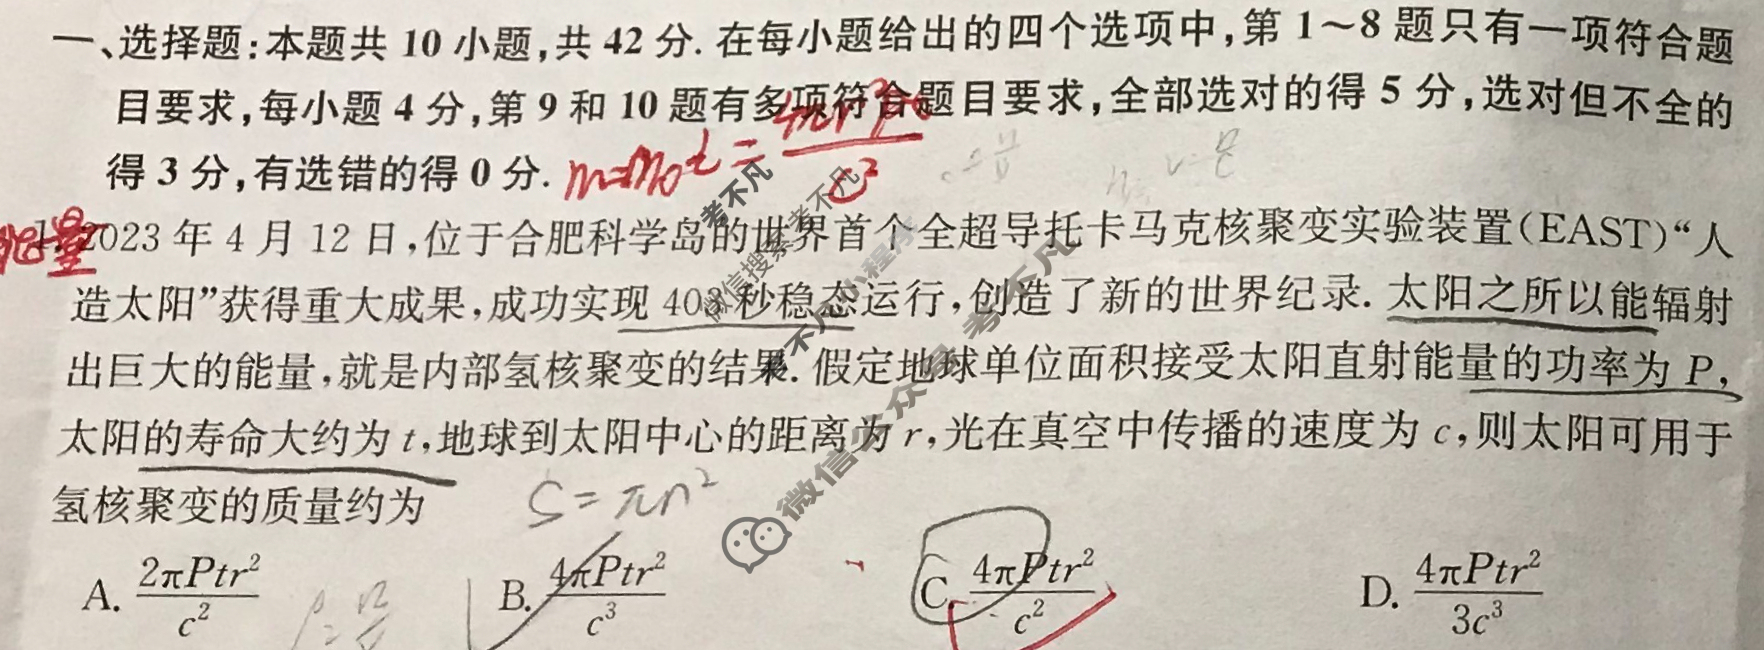 一、选择题:本题共 10 小题,共 42 分. 在每小题给出的四个选项中,第 1~8 题只有一项符合题
目要求,每小题 4 分,第 9 和 10 题有多项符合题目要求,全部选对的得 5 分,选对但不全的
得 3 分,有选错的得 0 分.
m=m₀t=
c²
能量
1. 2023 年 4 月 12 日,位于合肥科学岛的世界首个全超导托卡马克核聚变实验装置(EAST)“人
造太阳”获得重大成果,成功实现 403 秒稳态运行,创造了新的世界纪录. 太阳之所以能辐射
出巨大的能量,就是内部氢核聚变的结果. 假定地球单位面积接受太阳直射能量的功率为 P,
太阳的寿命大约为 t,地球到太阳中心的距离为 r,光在真空中传播的速度为 c,则太阳可用于
氢核聚变的质量约为
S=πr²
A. 2πPtr²/c² B. 4πPtr²/c³ C. 4πPtr²/c² D. 4πPtr²/3c³
考不凡
微信搜索 考不凡
考不凡小程序
微信公众号 考不凡